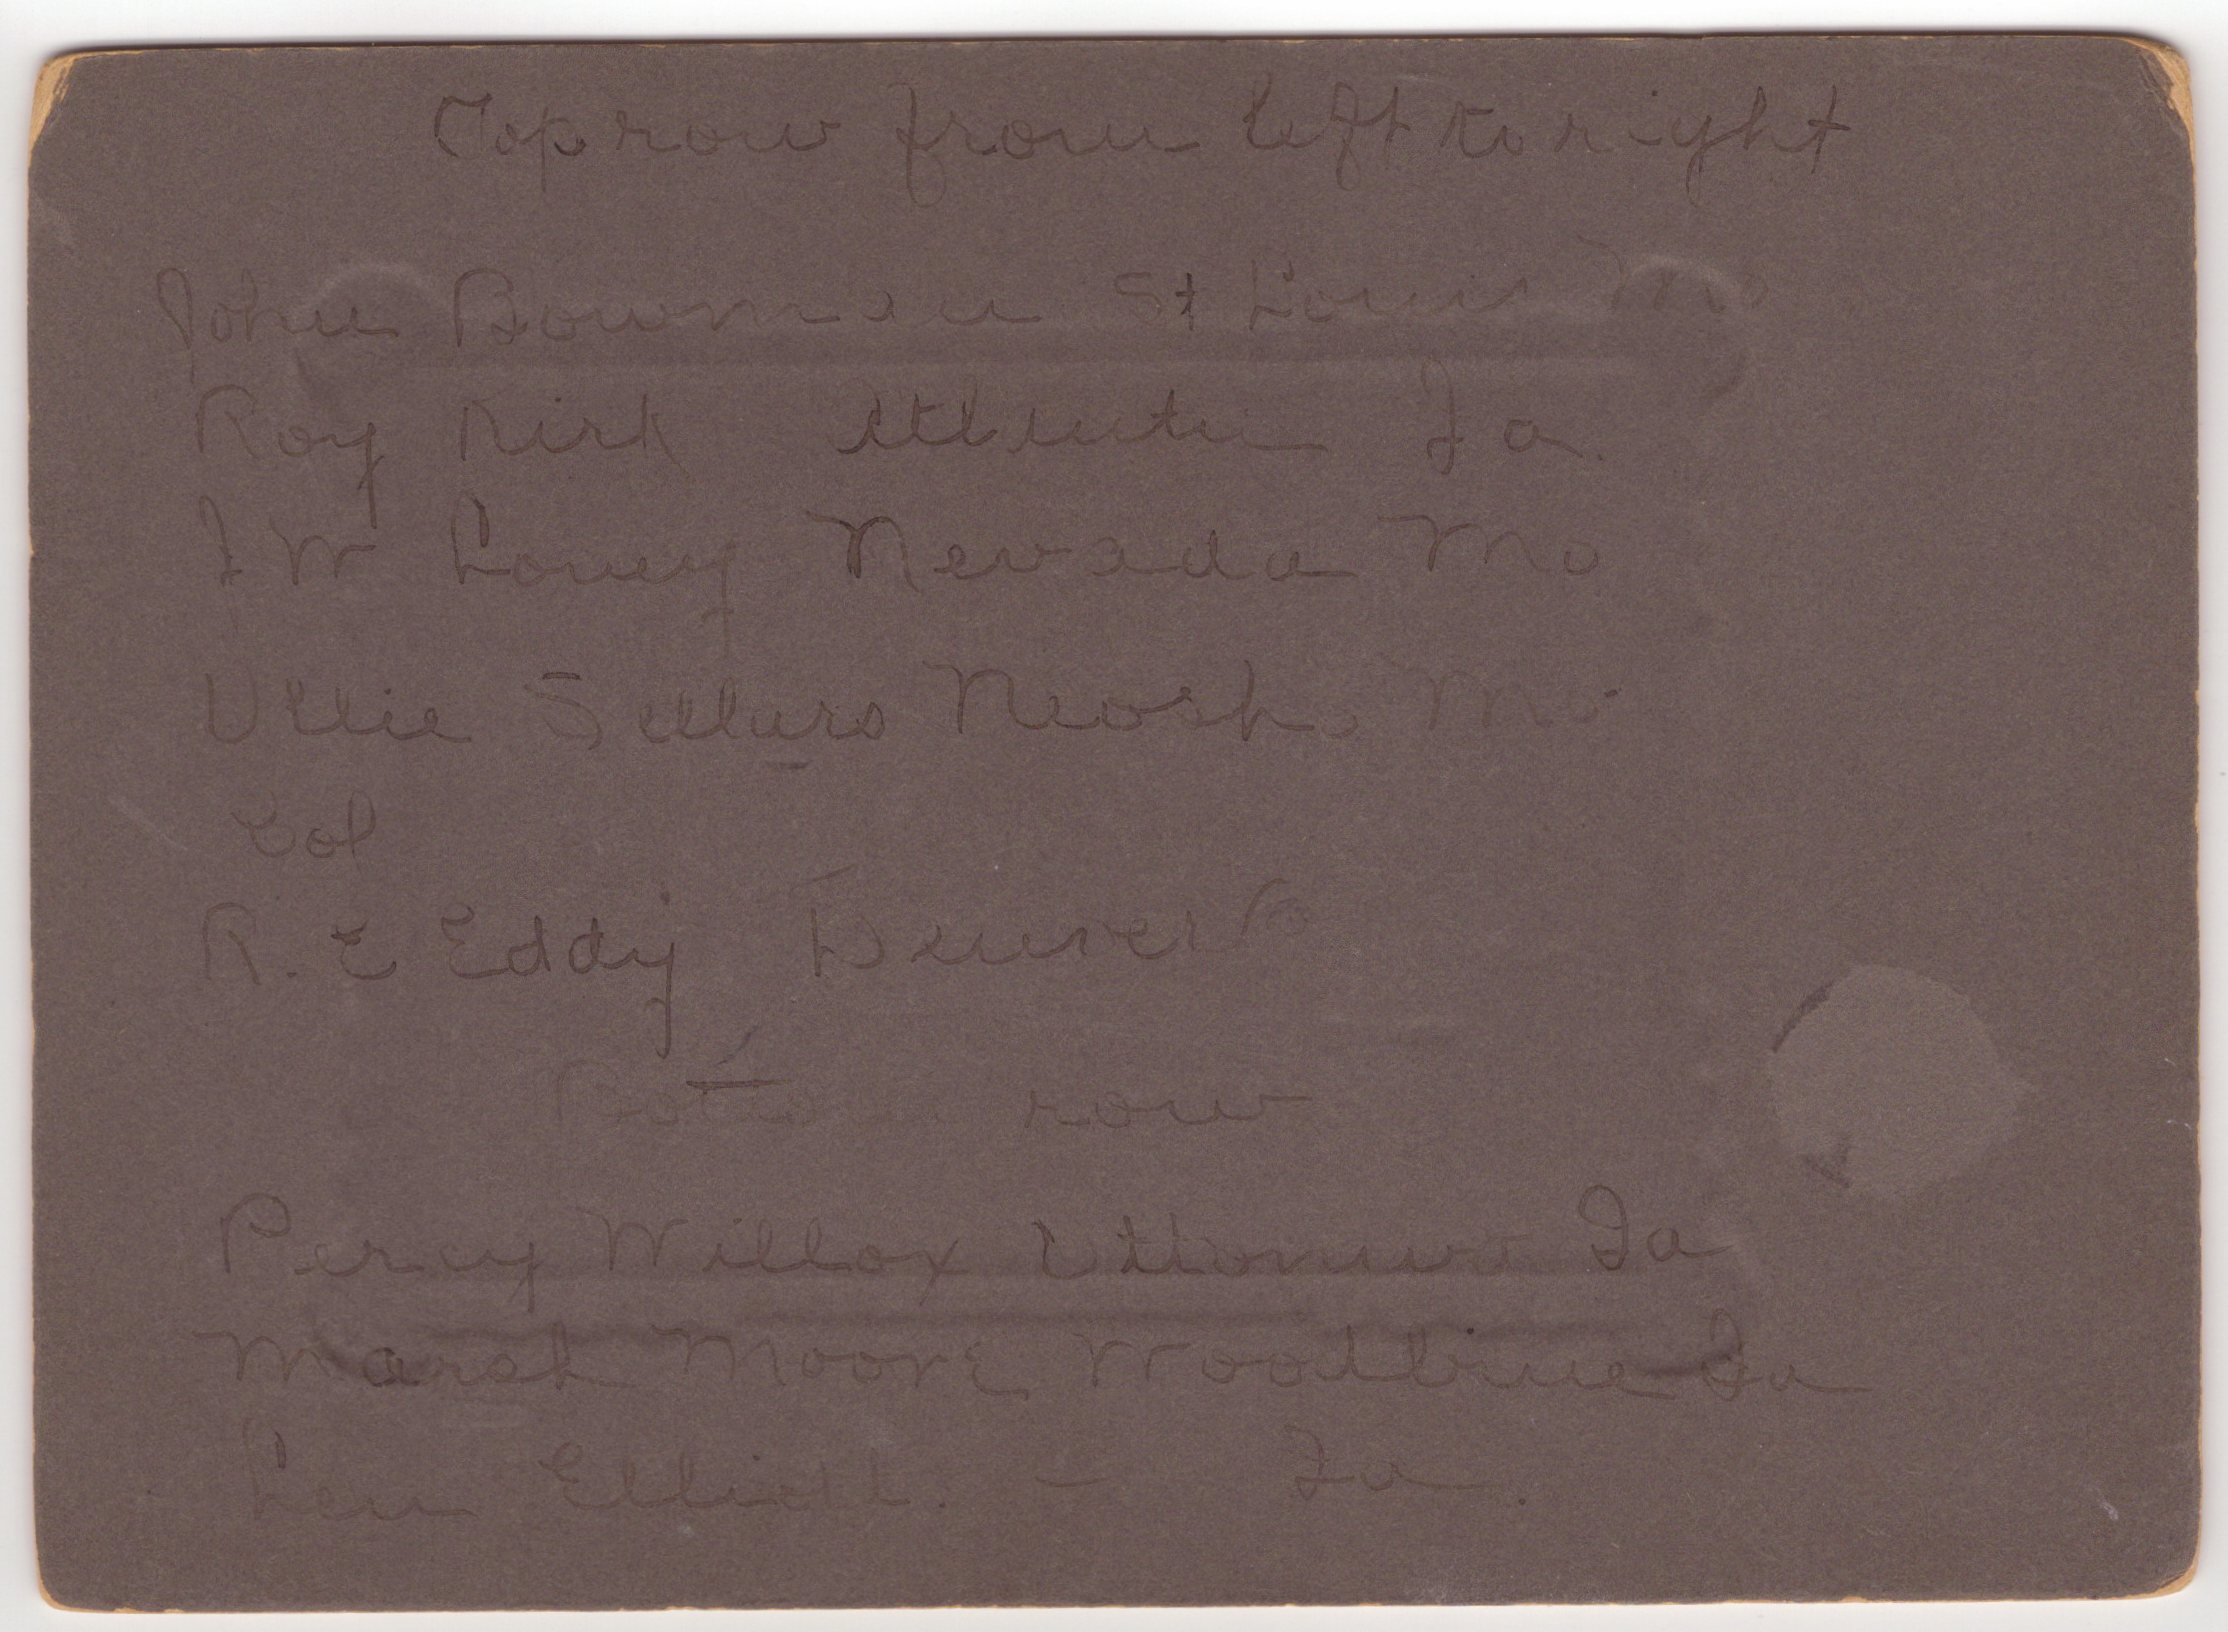 Top row from left to right
John Bowman St Louis Mo
Roy Kirk Atlantic Ia.
J W Loney Nevada Mo
Ullie Sellars Neosho Mo.
Col
R. E Eddy Denver
Bottom row
Percy Willox Ia
Marsh Moore Woodbine Ia
Len Elliott. - Ia.